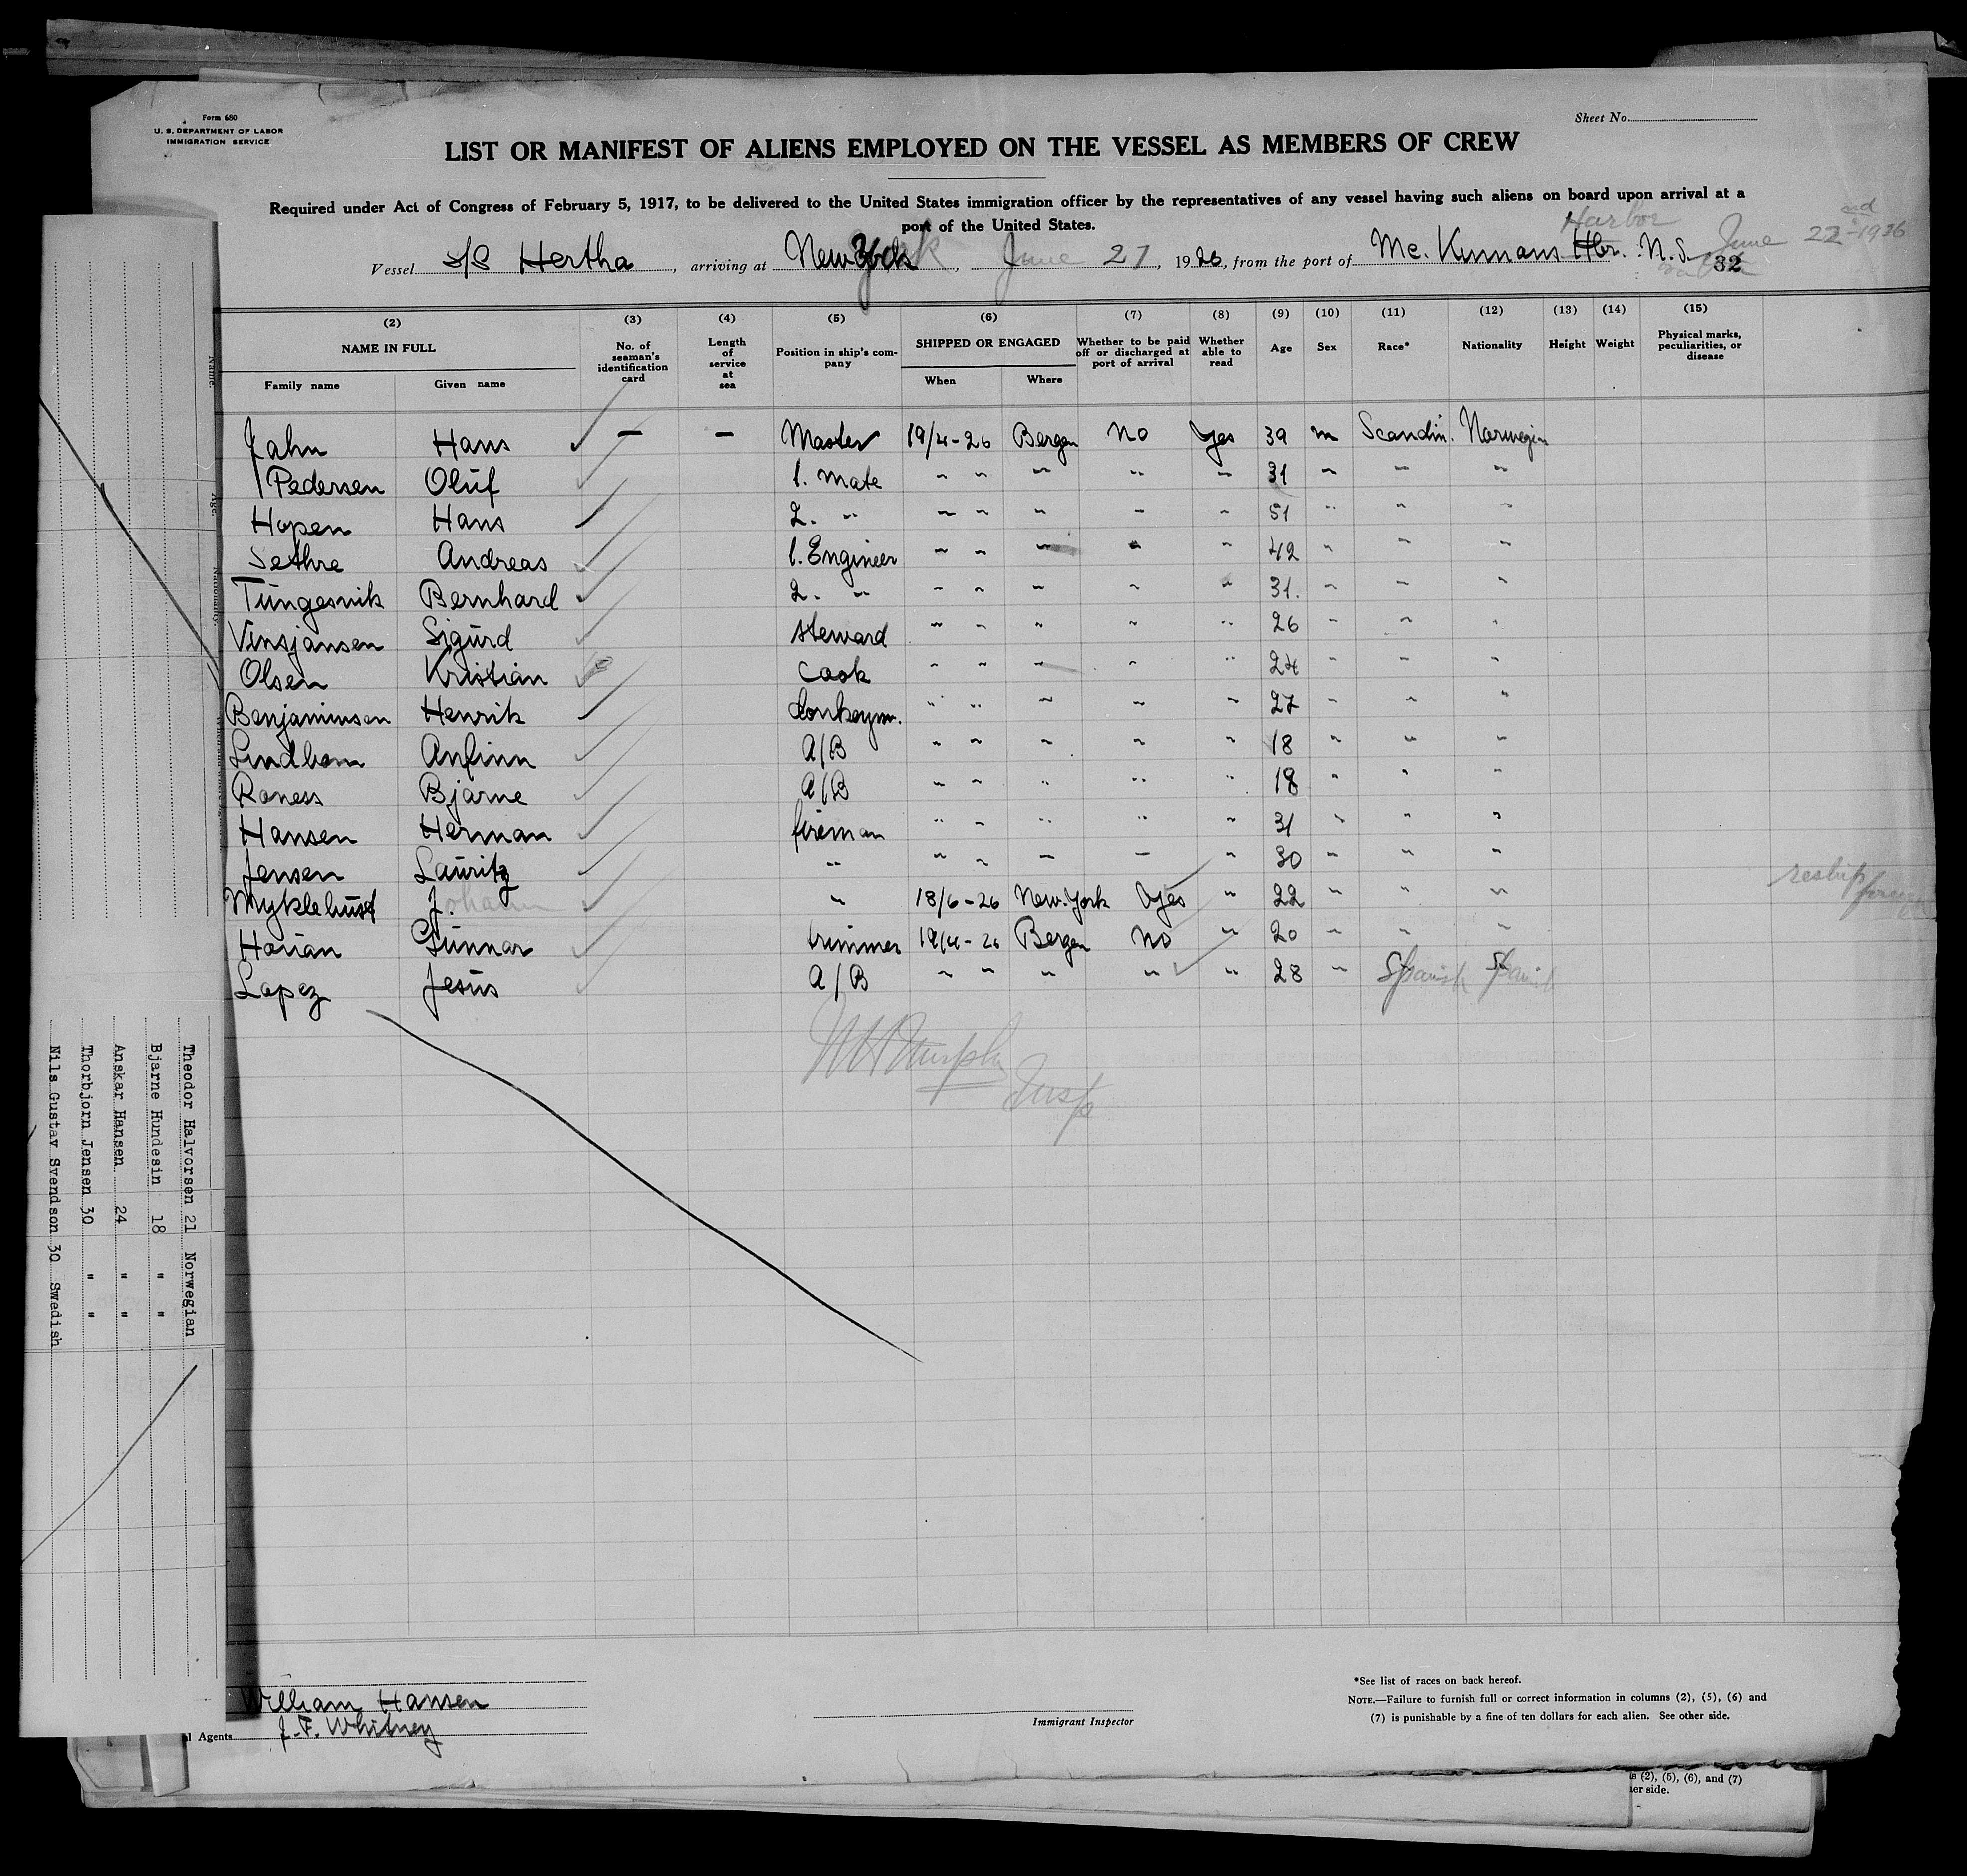 Form 680
U. S. DEPARTMENT OF LABOR
IMMIGRATION SERVICE
Sheet No.
LIST OR MANIFEST OF ALIENS EMPLOYED ON THE VESSEL AS MEMBERS OF CREW
Required under Act of Congress of February 5, 1917, to be delivered to the United States immigration officer by the representatives of any vessel having such aliens on board upon arrival at a
port of the United States.
Harbor June 22nd - 1926
Vessel S/S Hertha, arriving at New York, June 27, 1926, from the port of Mc. Kinnans Hbr. N.S. 32
(2) (3) (4) (5) (6) (7) (8) (9) (10) (11) (12) (13) (14) (15)
NAME IN FULL No. of seaman's identification card Length of service at sea Position in ship's company SHIPPED OR ENGAGED Whether to be paid off or discharged at port of arrival Whether able to read Age Sex Race* Nationality Height Weight Physical marks, peculiarities, or disease
Family name Given name When Where
Jahn Hans — — Master 19/4-26 Bergen No Yes 39 m Scandin. Norwegin
Pedersen Oluf 1. mate " " " " " 31 " " "
Hopen Hans 2. " " " " " " 51 " " "
Sethre Andreas 1. Engineer " " " " " 42 " " "
Tungesvik Bernhard 2. " " " " " " 31. " " "
Vinsjansen Sigurd steward " " " " " 26 " " "
Olsen Kristian Cook " " " " " 24 " " "
Benjaminsen Henrik donkeym. " " " " " 27 " " "
Lindhom Anfinn A/B " " " " " 18 " " "
Roness Bjarne A/B " " " " " 18 " " "
Hansen Herman fireman " " " " " 31 " " "
Jensen Lauritz " " " " " " 30 " " "
Myklebust Johann " 18/6-26 New-York Yes " 22 " " " reship foreign
Hovian Gunnar trimmer 19/4-26 Bergen No " 20 " " "
Lopez Jesus A/B " " " " " 28 " Spanish Spanish
Insp
William Hansen
l Agents J. F. Whitney
Immigrant Inspector
*See list of races on back hereof.
NOTE.—Failure to furnish full or correct information in columns (2), (5), (6) and
(7) is punishable by a fine of ten dollars for each alien. See other side.
s (2), (5), (6), and (7)
her side.
Name
Age
Theodor Halvorsen 21 Norwegian
Bjarne Hundesin 18 " "
Anskar Hansen 24 " "
Thorbjorn Jensen 30 " "
Nils Gustav Svendson 30 Swedish